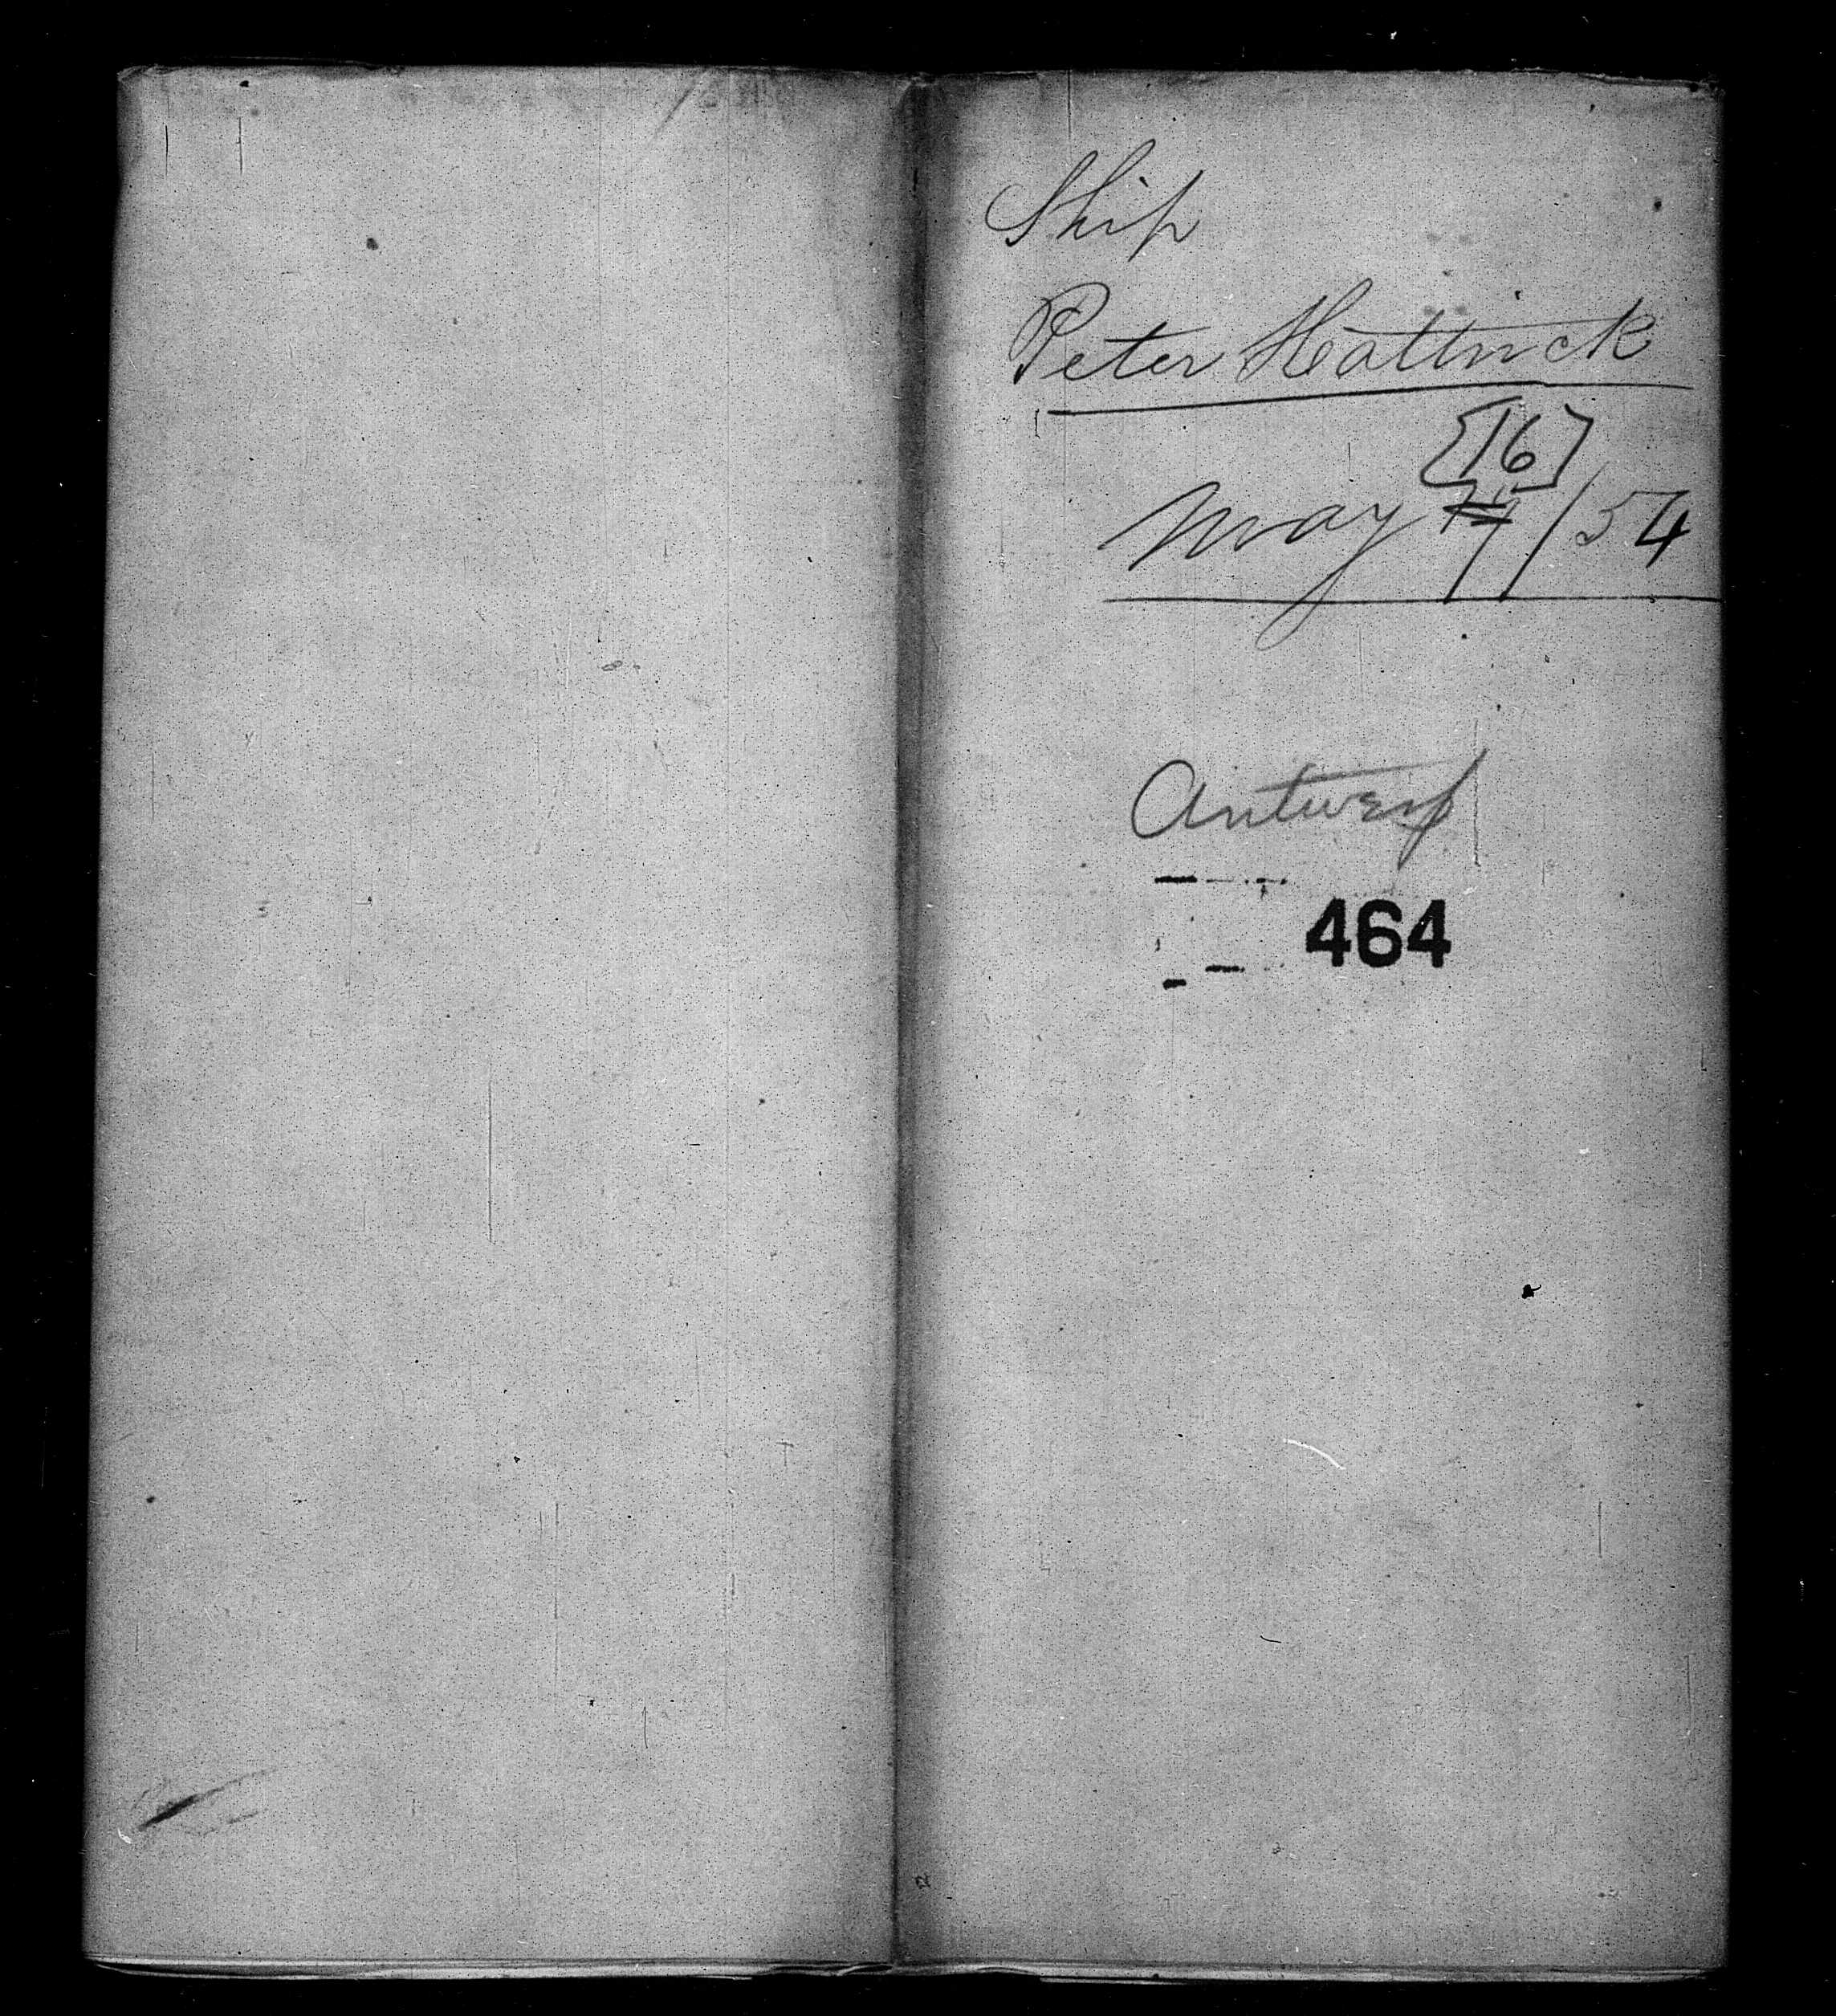 Ship
Peter Hattrick
[16]
May /54
Antwerp
464